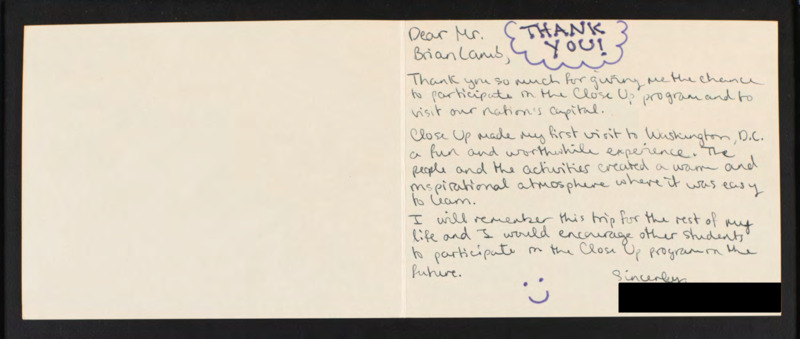 Dear Mr.
Brian Lamb,
THANK
YOU!
Thank you so much for giving me the chance
to participate in the Close Up program and to
visit our nation's capital.
Close Up made my first visit to Washington, D.C.
a fun and worthwhile experience. The
people and the activities created a warm and
inspirational atmosphere where it was easy
to learn.
I will remember this trip for the rest of my
life and I would encourage other students
to participate in the Close Up program in the
future.
Sincerely,